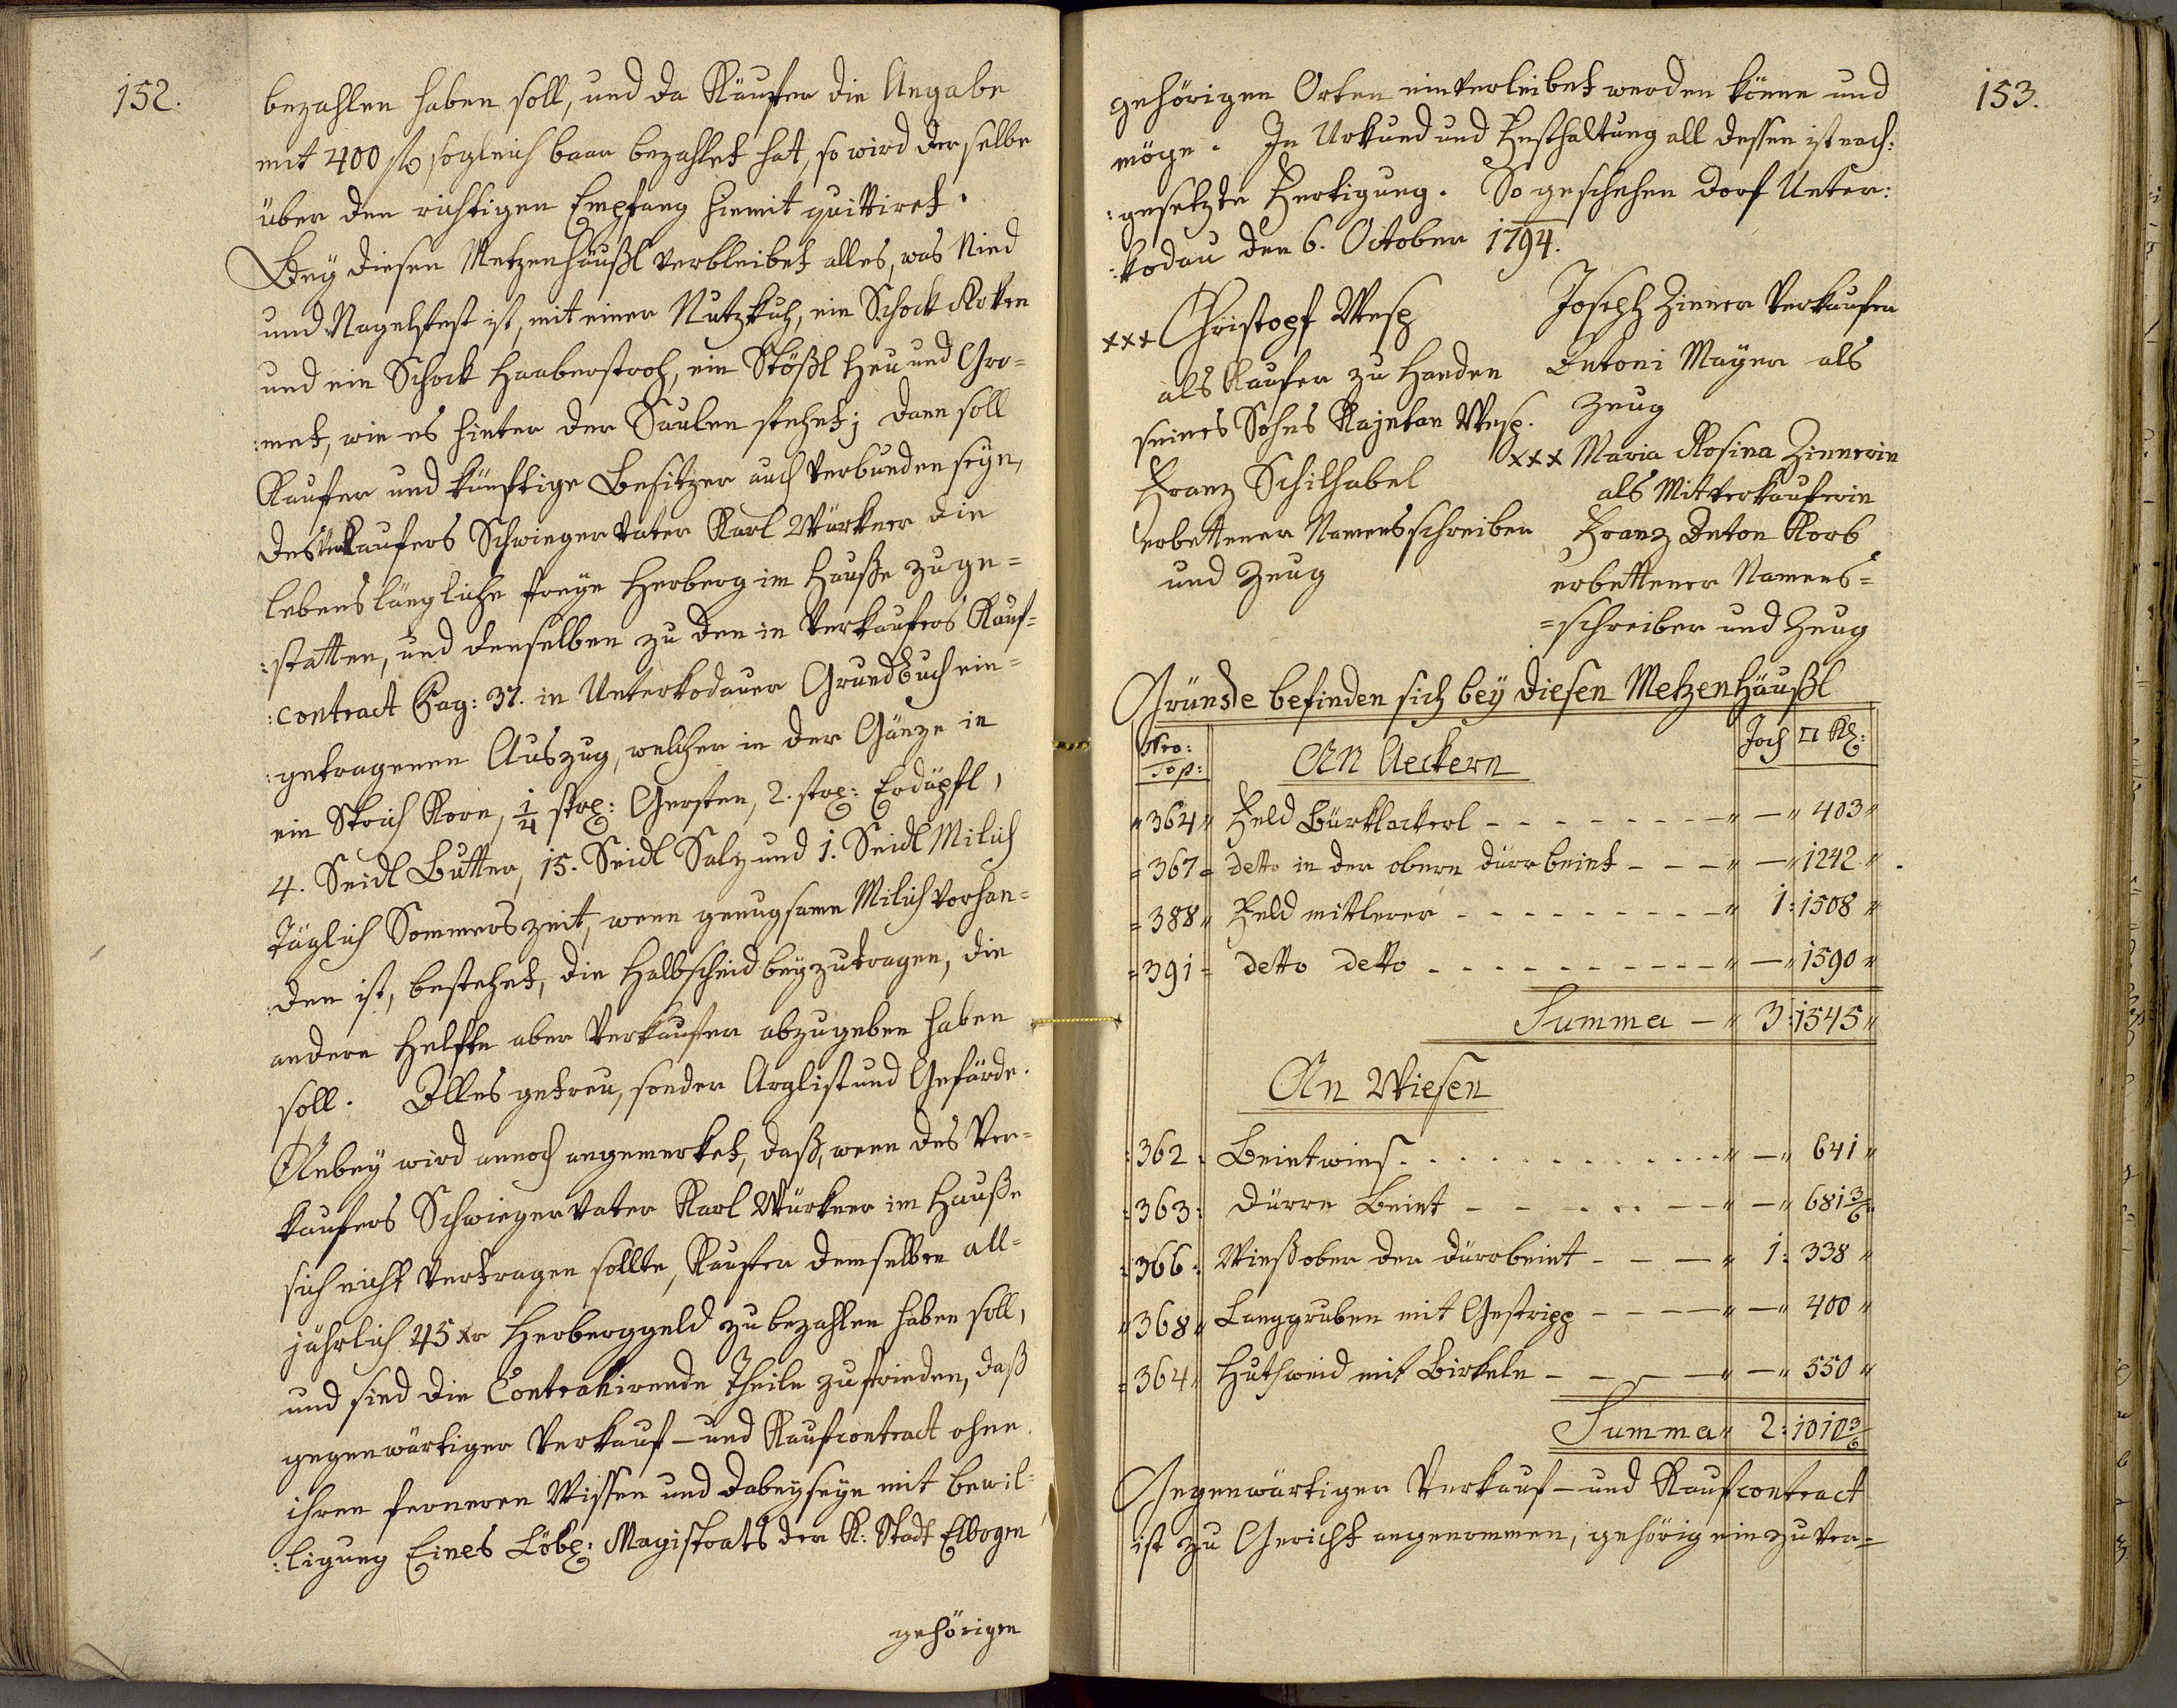 152.
bezahlen haben soll, und da Käufer die Angabe
mit 400 f sogleich baar bezahlet hat, so wird derselbe
über den richtigen Empfang hiemit quittiret.
Bey diesen Metzenhäußl verbleibet alles, was Nied
und Nagelfest ist, mit einer Nutzkuh, ein Schock Korn
und ein Schock Haaberstroh, ein Stößl Heu und Gro=
:met, wie es hinter der Saulen stehet; dann soll
Kaufer und künftige Besitzer auch verbunden seyn,
des Verkaufers Schwiegervater Karl Würkner die
lebenslängliche freye Herberg im Hauße zu ge=
:statten, und denselben zu den in Verkaufers Kauf=
:contract Pag: 37. in Unterkodauer Grundbuch ein=
:getragenen Auszug, welcher in der Gänze in
ein Strich Korn, 1/4 strch: Gersten, 2. strch: Erdäpfl,
4. Seidl Butter, 15. Seidl Salz und 1. Seidl Milich
täglich Sommerszeit, wenn genugsame Milich vorhan=
:den ist, bestehet, die Halbscheid beyzutragen, die
andere Helfte aber Verkaufer abzugeben haben
soll. Alles getreu, sonder Arglist und Gefärde.
Anbey wird annoch angemerket, daß, wenn des Ver=
kaufers Schwiegervater Karl Würkner im Hauße
sich nicht vertragen sollte, Kaufer demselben all=
jährlich 45 xr Herberggeld zu bezahlen haben soll,
und sind die Contrahirende Theile zufrieden, daß
gegenwärtiger Verkauf- und Kaufcontract ohne
ihren ferneren Wissen und Dabeyseyn mit Bewil=
:ligung Eines Löbl: Magistrats der K: Stadt Elbogen
gehörigen
153.
gehörigen Orten einverleibet werden könne und
möge. In Urkund und Festhaltung all dessen ist nach:
:gesetzte Fertigung. So geschehen Dorf Unter:
:kodau den 6. October 1794.
xxx Christoph Wesp
als Kaufer zu Handen
seines Sohns Kajetan Wesp.
Franz Schilhabel
erbettener Namensschreiber
und Zeug
Joseph Zinner Verkaufer
Antoni Mayer als
Zeug
xxx Maria Rosina Zinnerin
als Mitverkauferin
Franz Anton Korb
erbettener Namens=
=schreiber und Zeug
Gründe befinden sich bey diesen Metzenhäußl
Nro: Top: An Aeckern Joch □ Kl:
" 364 " Feld Bürklackerl - - - " — " 403 "
= 367 = detto in der obern dürrbeint - - - " — " 1242 "
= 388 " Feld mittlerer - - - " 1: 1508 "
= 391 = detto detto - - - " — " 1590 "
Summa — " 3: 1545 "
An Wiesen
: 362 . Beintwies - - - " — " 641 "
: 363 : Dürre Beint - - - " — " 681 3/6 "
: 366 : Wieß ober der dürrbeint - - - " 1: 338 "
" 368 " Langgruben mit Gestripp - - - " — " 400 "
= 364 " Huthweid mit Birkeln - - - " — " 550 "
Summa " 2: 1010 3/6
Gegenwärtiger Verkauf- und Kaufcontract
ist zu Gericht angenommen, gehörig einzuver=